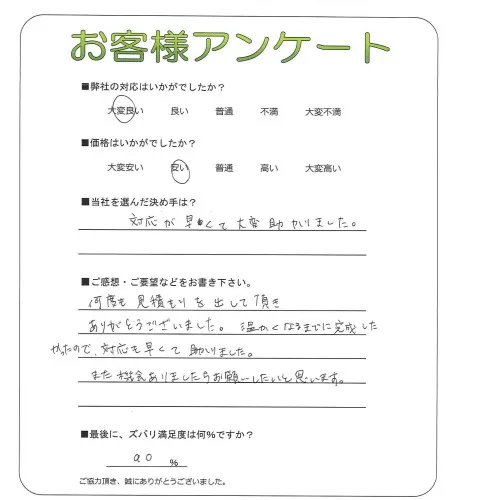 お客様アンケート
■弊社の対応はいかがでしたか？
大変良い 良い 普通 不満 大変不満
■価格はいかがでしたか？
大変安い 安い 普通 高い 大変高い
■当社を選んだ決め手は？
対応が早くて大変助かりました。
■ご感想・ご要望などをお書き下さい。
何度も見積もりを出して頂き
ありがとうございました。温かくなるまでに完成した
かったので、対応も早くて助かりました。
また機会ありましたらお願いしたいと思います。
■最後に、ズバリ満足度は何％ですか？
90 %
ご協力頂き、誠にありがとうございました。